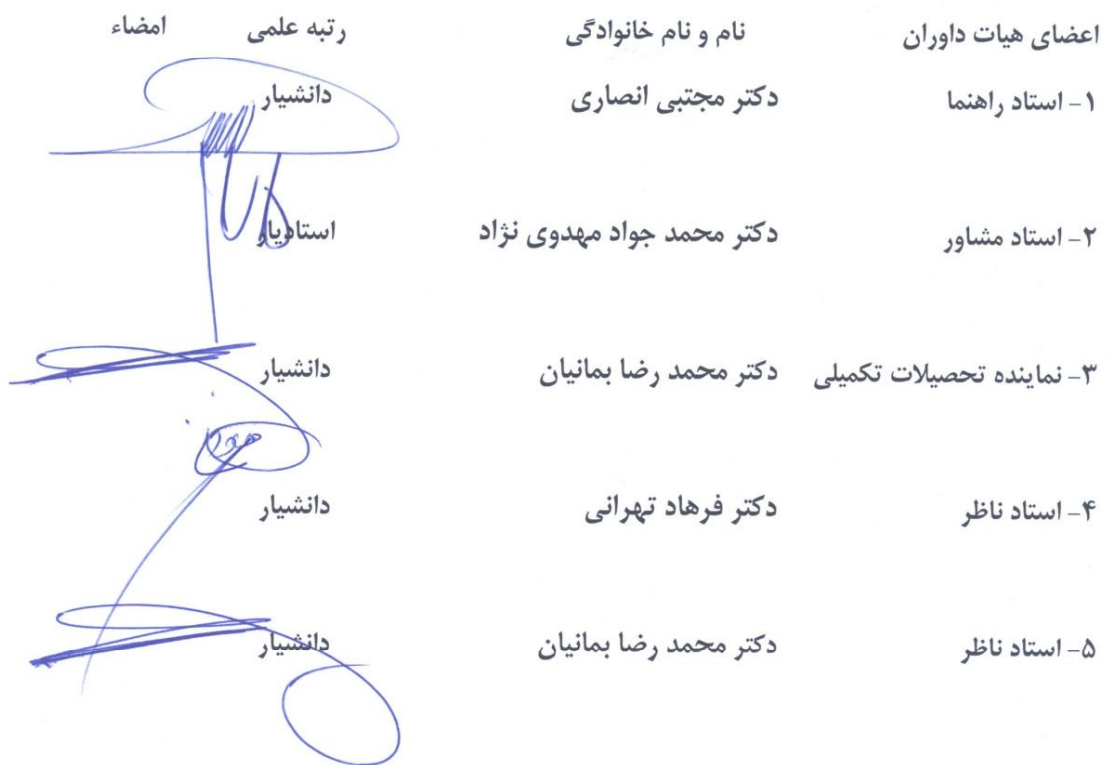 اعضای هیات داوران نام و نام خانوادگی رتبه علمی امضاء
۱- استاد راهنما دکتر مجتبی انصاری دانشیار
۲- استاد مشاور دکتر محمد جواد مهدوی نژاد استادیار
۳- نماینده تحصیلات تکمیلی دکتر محمد رضا بمانیان دانشیار
۴- استاد ناظر دکتر فرهاد تهرانی دانشیار
۵- استاد ناظر دکتر محمد رضا بمانیان دانشیار